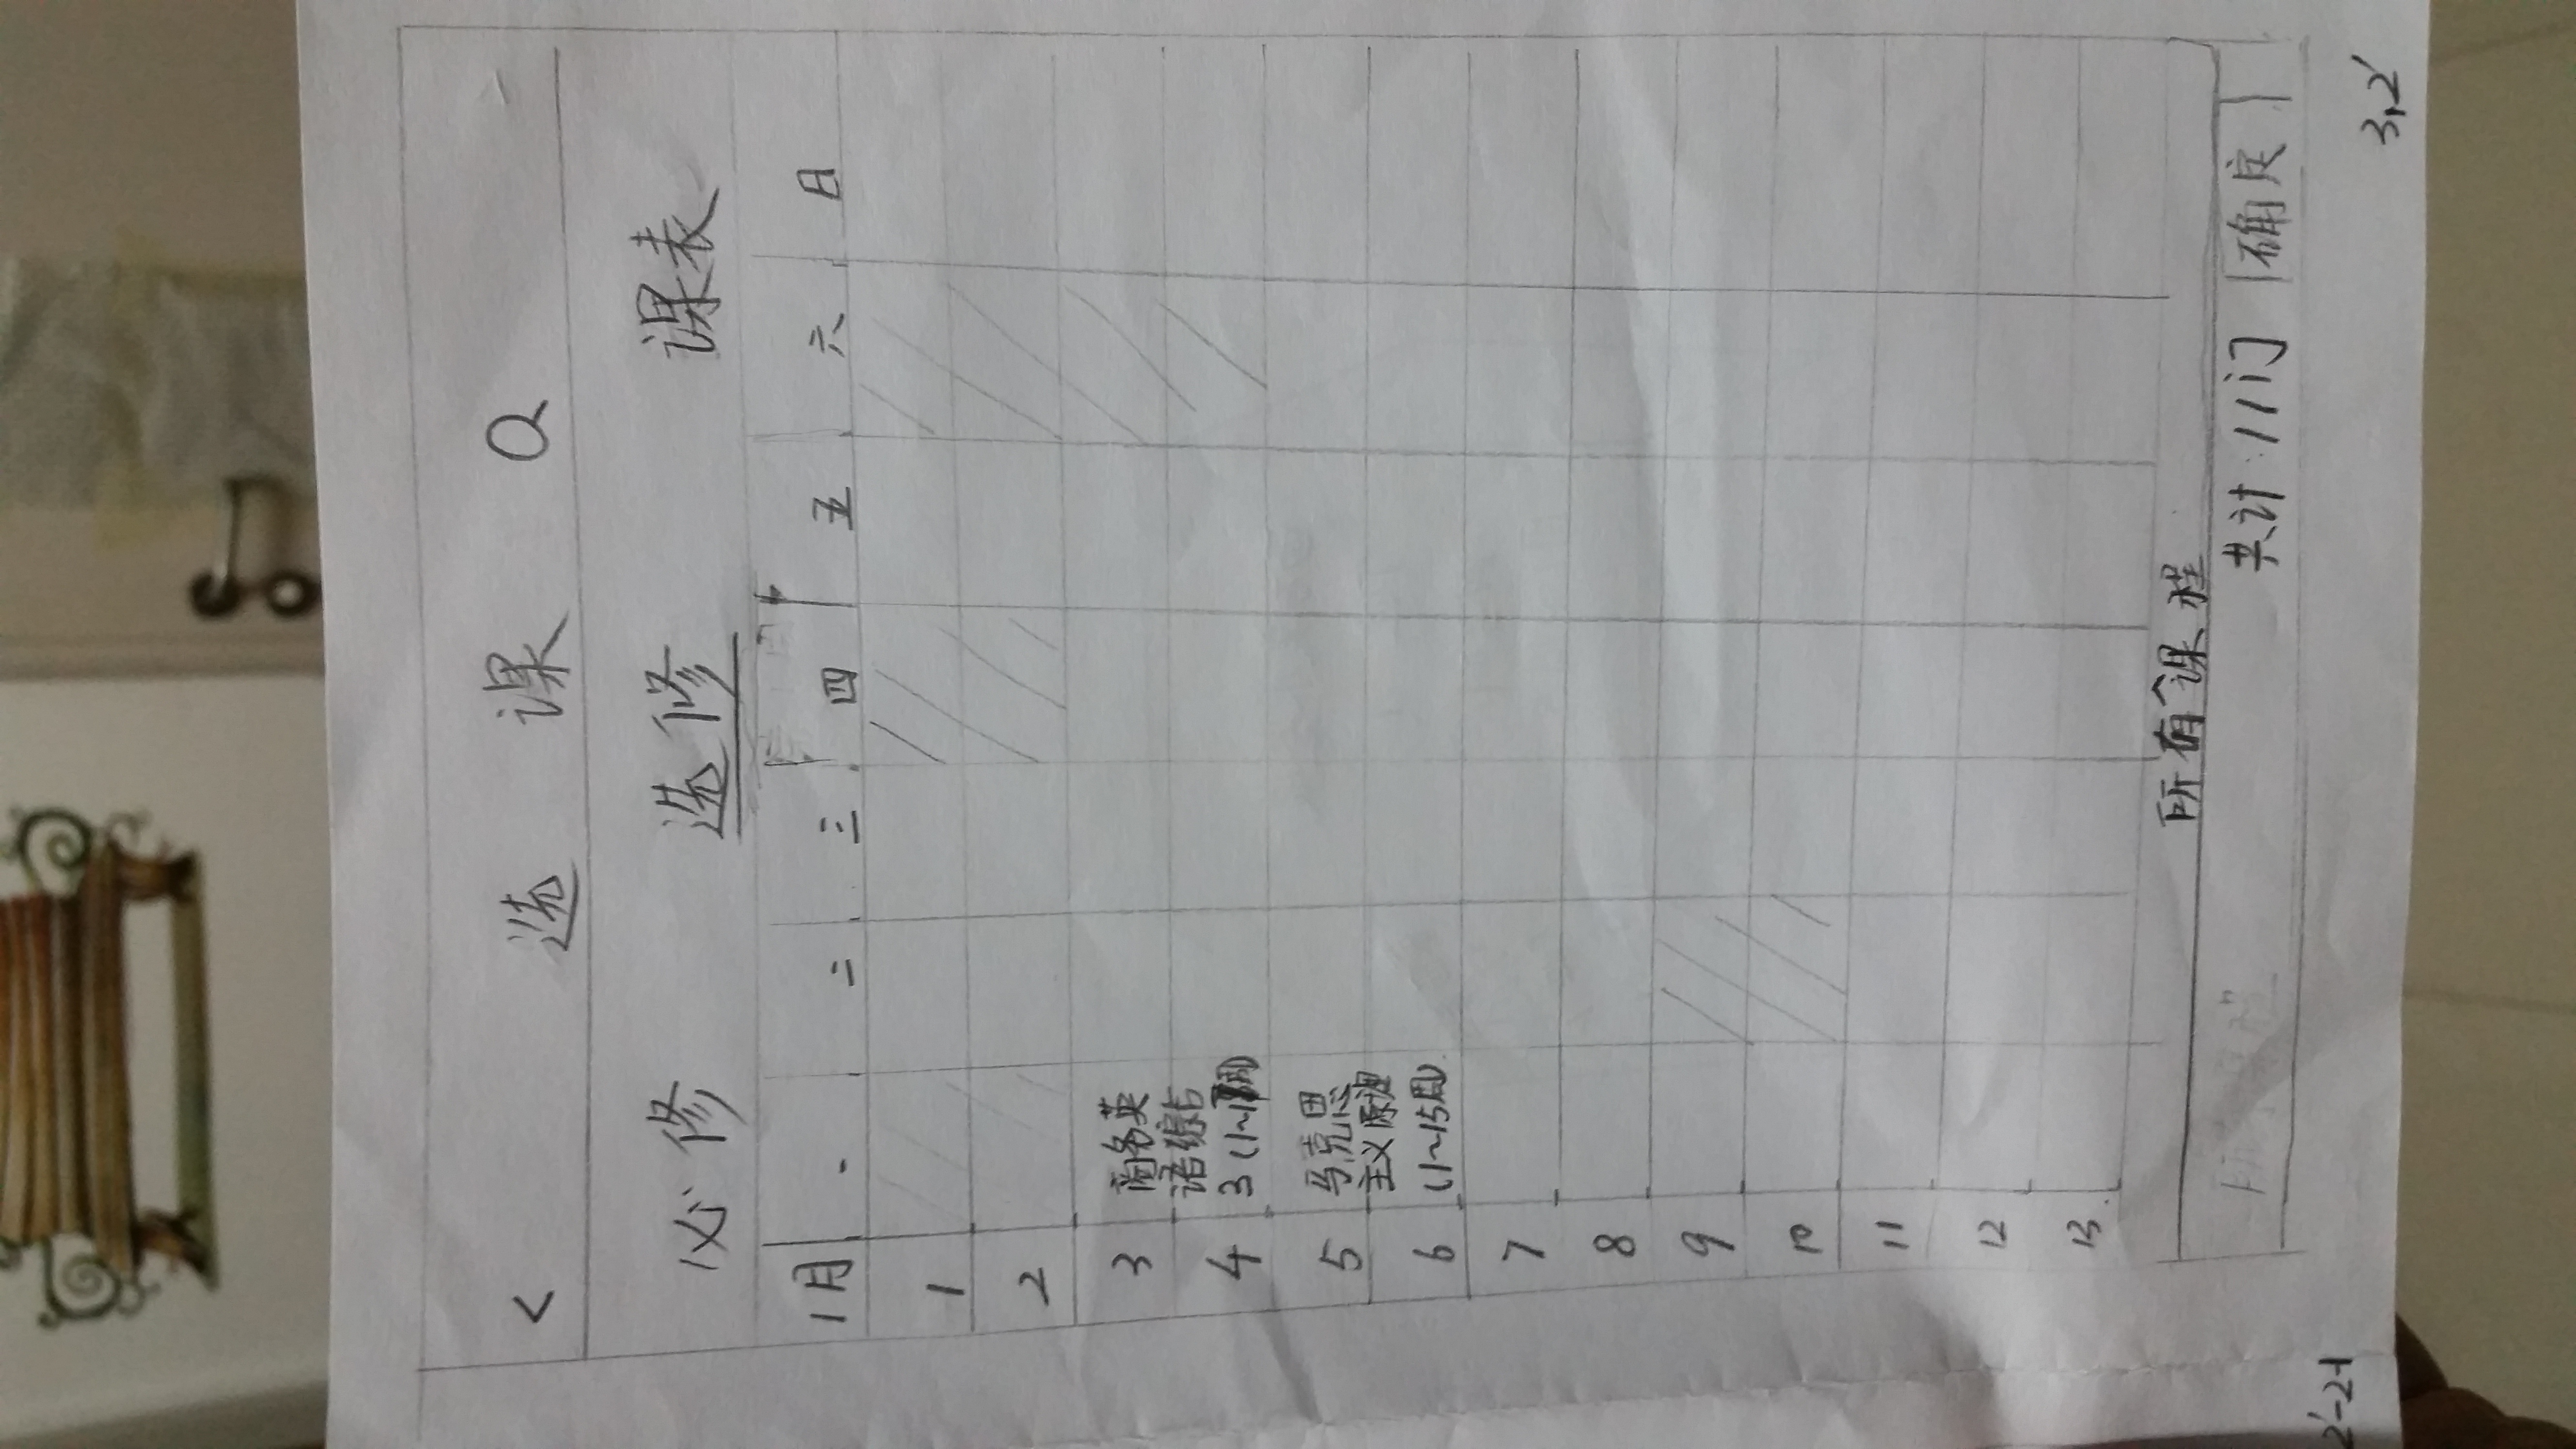 < 选课 Q
必修 选修 课表
1月 一 二 三 四 五 六 日
1
2
3 商务英
语综合
4 3(1~1 周)
5 马克思
主义原理
6 (1~15周)
7
8
9
10
11
12
13
所有课程
共计:11门 确定
2'-2-1
3,2'